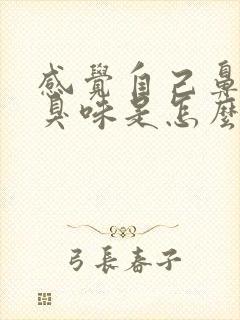 感覺自己鼻
臭味是怎麼
弓長春子